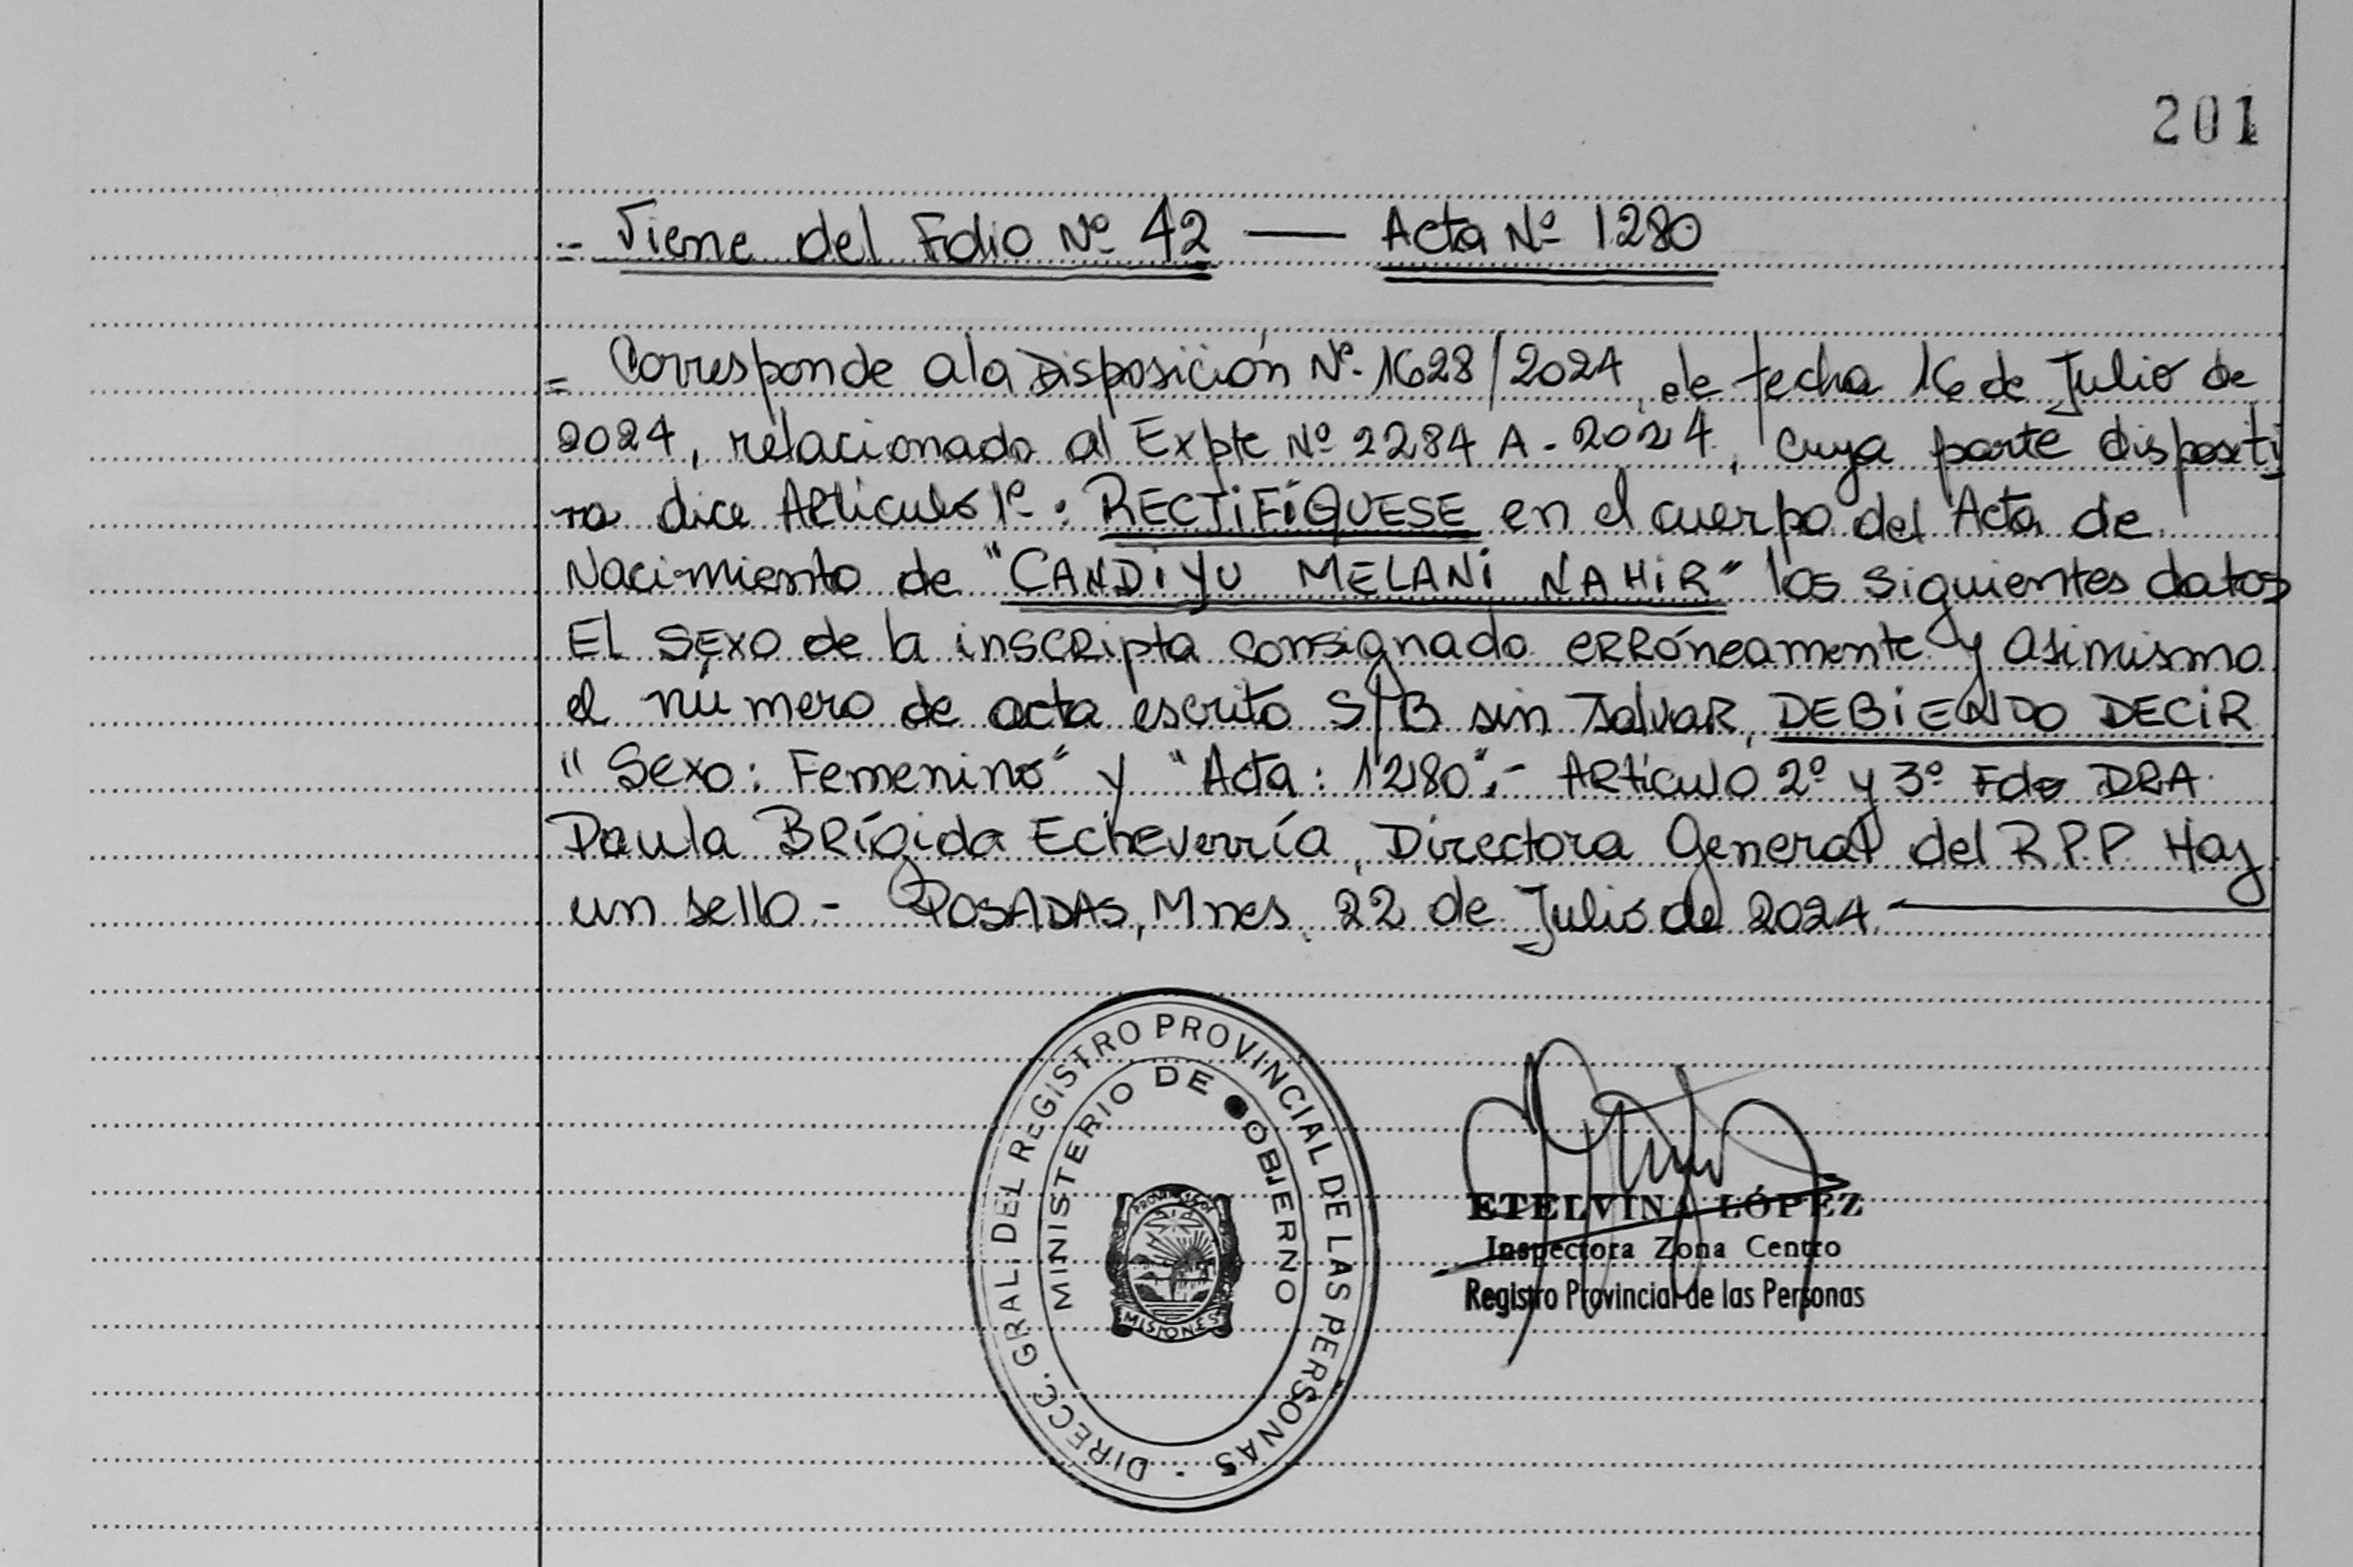 201
=- Viene del Folio Nº 42 — Acta Nº 1280
= Corresponde a la Disposición Nº 1628/2024, de fecha 16 de Julio de
2024, relacionado al Expte Nº 2284 A - 2024, cuya parte dispositi
va dice Artículo 1º: RECTIFÍQUESE en el cuerpo del Acta de
Nacimiento de "CANDIYU MELANI NAHIR" los siguientes datos
El SEXO de la inscripta consignado erróneamente y asimismo
el número de acta escrito S/B sin salvar, DEBIENDO DECIR
"Sexo: Femenino" y "Acta: 1280".- Artículo 2º y 3º Fdo DRA.
Paula Brígida Echeverría, Directora General del R.P.P. Hay
un sello.- POSADAS, Mnes, 22 de Julio de 2024.—
DIRECC. GRAL. DEL REGISTRO PROVINCIAL DE LAS PERSONAS
MINISTERIO DE GOBIERNO
MISIONES
ETELVINA LÓPEZ
Inspectora Zona Centro
Registro Provincial de las Personas